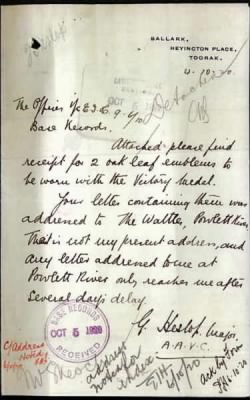 BALLARK,
HEYINGTON PLACE,
TOORAK.
4.10.20.
The Officer i/c
Base Records.
Attached please find
receipt for 2 oak leaf emblems to
be worn with the Victory Medal.
Your letter containing them was
addressed to The Wattles, Powlett River
That is not my present address, and
any letter addressed to me at
Powlett River only reaches me after
several days delay.
G. Heslop Major.
A.A.V.C.
BASE RECORDS
OCT 5 1920
C/Address
Noted
Address
noted for
index